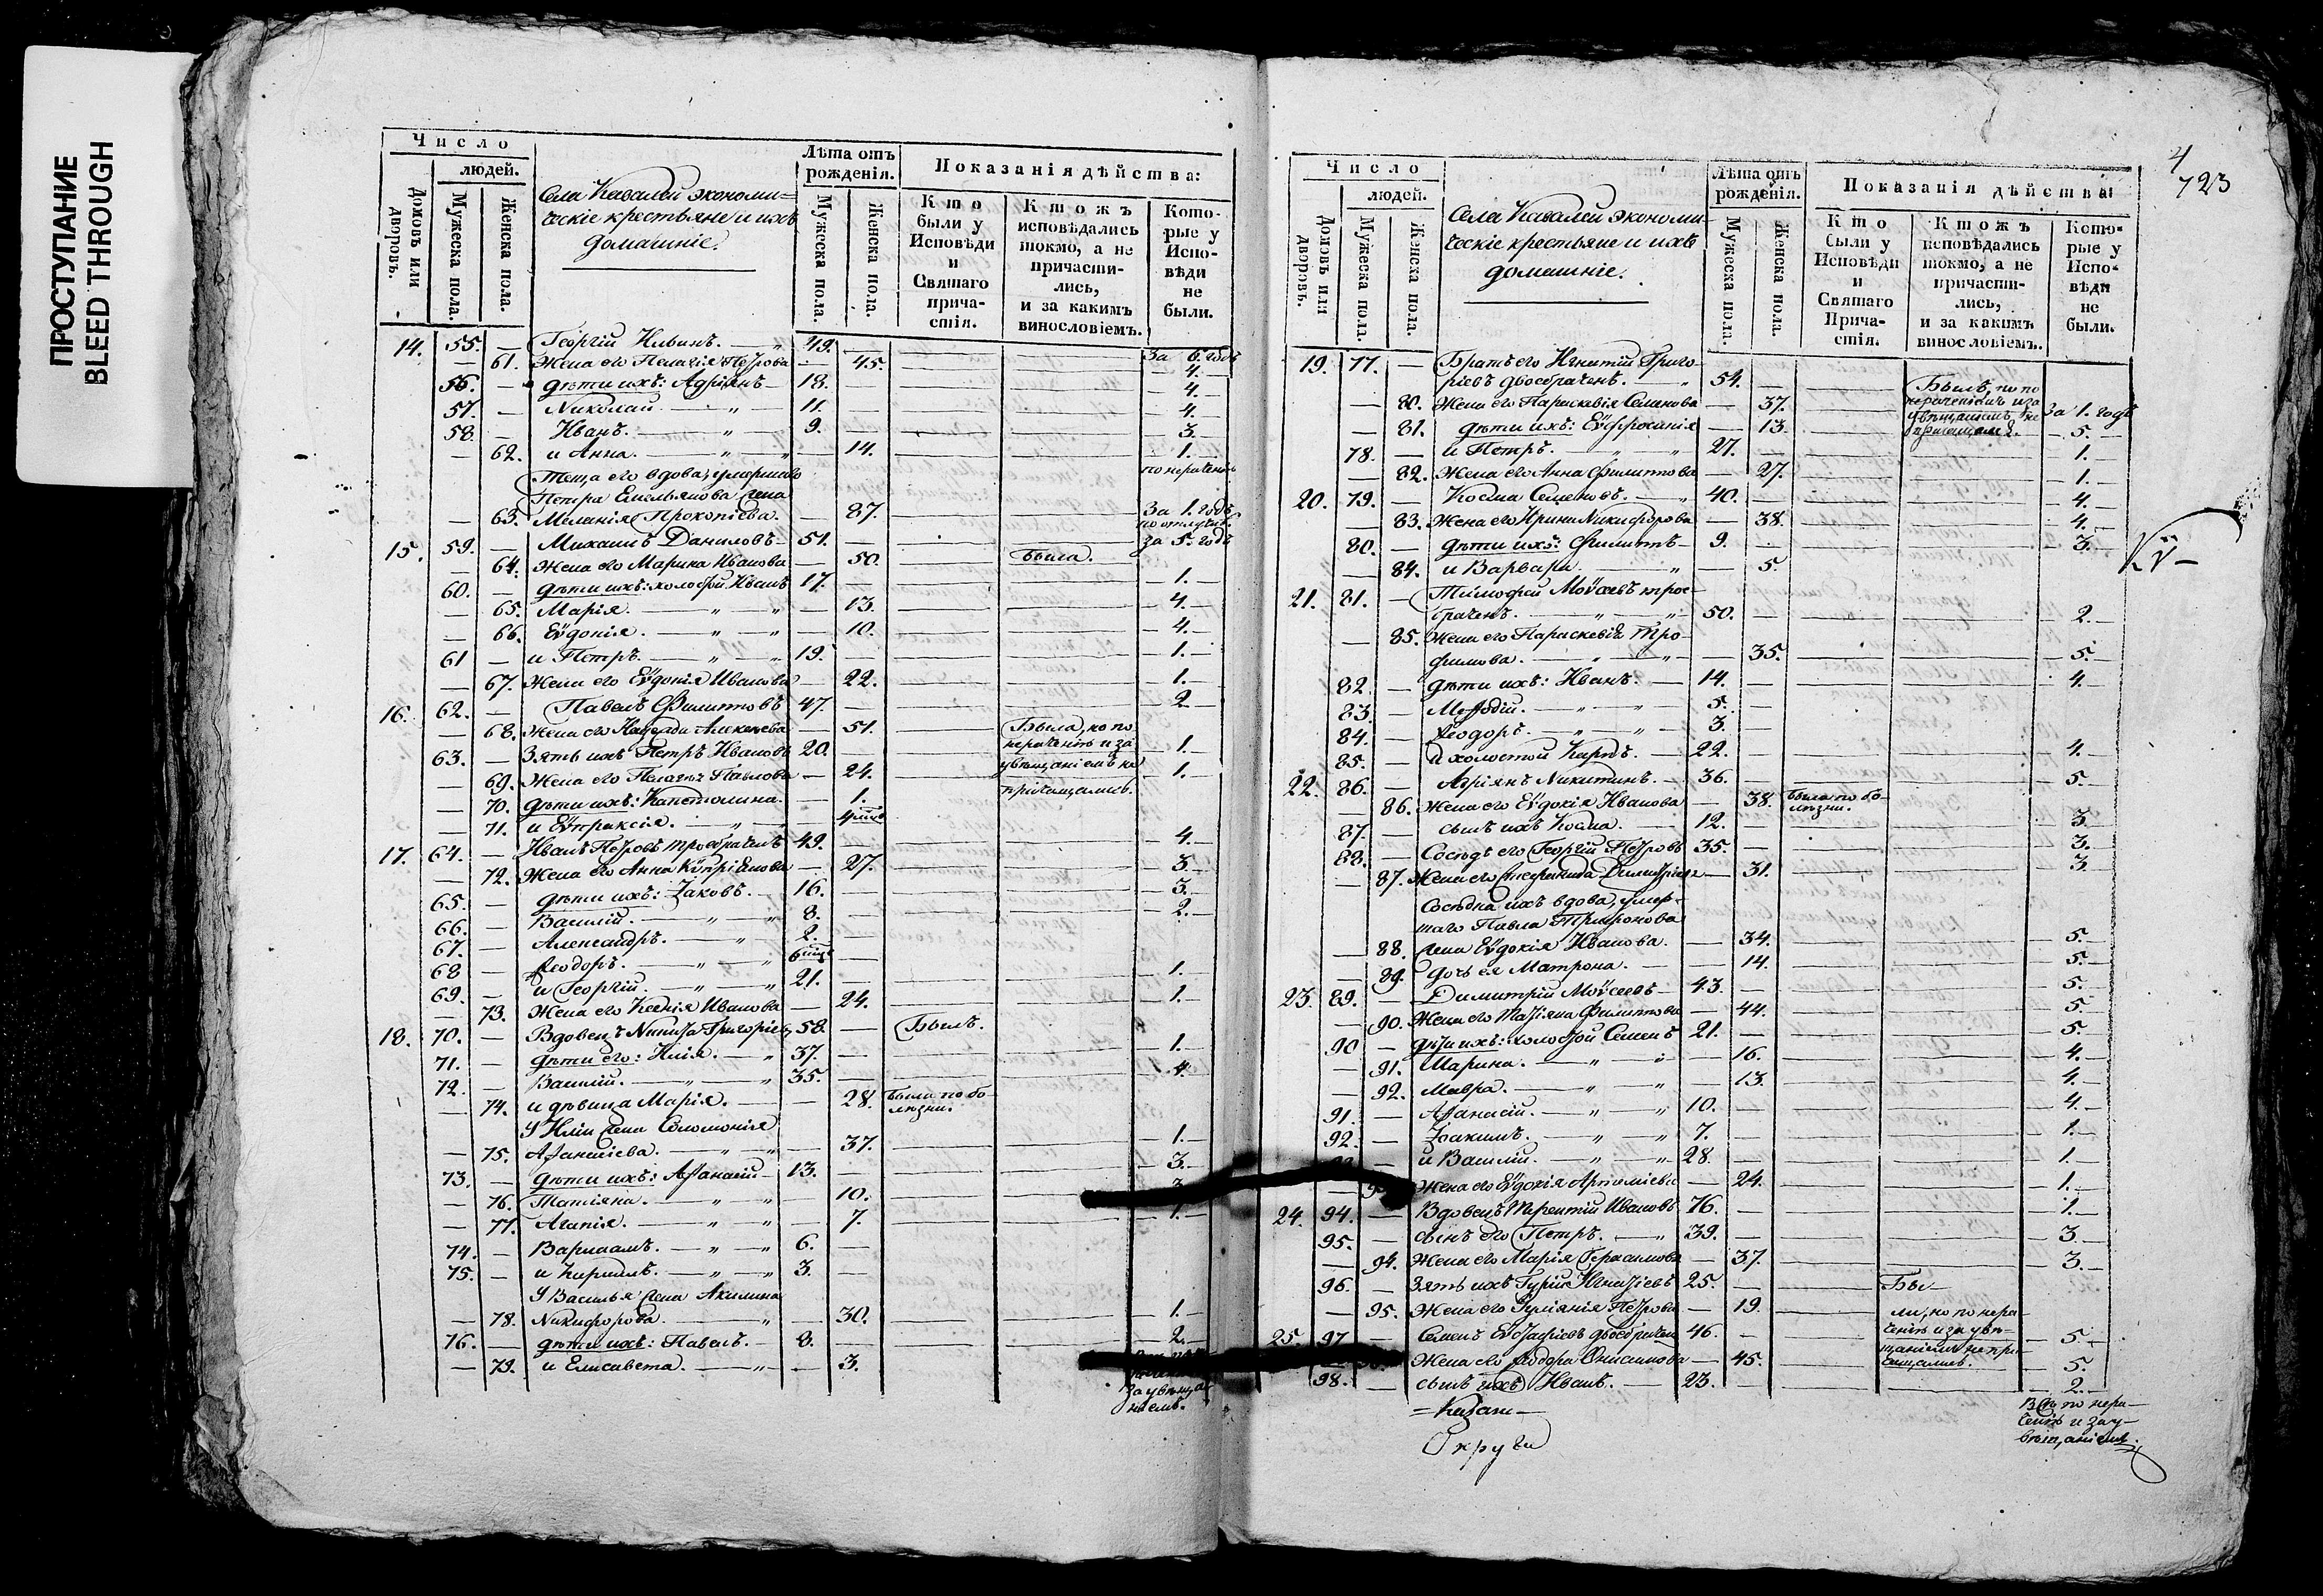 ПРОСТУПАНИЕ
BLEED THROUGH
Число
людей.
Домовъ или дворовъ.
Мужеска пола.
Женска пола.
Села Кавалей экономи=
ческіе крестьяне и ихъ
домашніе.
Лѣта отъ рожденія.
Мужеска пола.
Женска пола.
Показанія дѣйства:
Кто были у Исповѣди и Святаго причастія.
Ктожъ исповѣдались токмо, а не причастились, и за какимъ винословіемъ.
Которые у Исповѣди не были.
14. 55. — Георгій Ильинъ. — 49. —
61. Жена его Пелагія Петрова — 45. — За 6. годъ
56. — дѣти ихъ: Адріянъ — 18. — 4.
57. — Николай. — " — 11. — 4.
58. — Иванъ. — " — 9. — 4.
— 62. и Анна. — " — 14. — 3.
Теща его вдова, умершаго
Петра Емельянова жена
— 63. Меланія Прокопіева. — 87. — За 1. годъ
15. 59. — Михаилъ Даниловъ — 51. — за 5. годъ
— 64. Жена его Марина Иванова — 50. — Была.
60. — дѣти ихъ: холостой Иванъ 17. — 1.
— 65. Марія. — " — 13. — 4.
— 66. Еѵдокія. — " — 10. — 4.
61 — и Петръ. — " — 19. — 1.
— 67. Жена его Еѵдокія Иванова — 22. — 1.
16. 62. — Павелъ Филиповъ 47. — 2
— 68. Жена его Надежда Алексѣева — 51. — Была, но по
63. — Зять ихъ Петръ Ивановъ 20. — нераченію и за — 1.
— 69. Жена его Пелагія Павлова — 24. — увѣщаніемъ не — 1.
— 70. дѣти ихъ: Капетолина. — 1. причащались.
— 71. и Еѵпраксія. — " — 4
17. 64. — Иванъ Петровъ троебраченъ 49. — 4.
— 72. Жена его Анна Кѵпріянова — 27. — 3.
65. — дѣти ихъ: Іаковъ. — 16. — 3.
66. — Василій. — " — 8. — 2.
67. — Александръ. — " — 2. —
68 — Ѳеодоръ. — " — 6
69. — и Георгій. — " — 21. — 1.
— 73. Жена его Ксенія Иванова — 24. — 1.
18. 70. — Вдовецъ Никита Григорьевъ 58. — Былъ.
71. — дѣти его: Илія. — " 37. — 1.
72. — Василій. — " — 35. — 4.
— 74. и дѣвица Марія. — 28. Была по бо-
лѣзни.
У Иліи жена Соломонія
— 75. Аѳанасіева. — " — 37. — 1.
73. — дѣти ихъ: Аѳанасій — 13. — 3.
— 76. Татіяна. — " — 10. — 3
— 77. Агапія. — " — 7. — 1.
74. — Варлаамъ. — " — 6. —
75. — и Кирилъ. — " — 3. —
У Василья жена Акилина
— 78. Никифорова. — " — 30. — 1.
76. — дѣти ихъ: Павелъ. — 8. — 2.
— 79. и Елисавета. — " — 3.
за увѣща-
ніемъ.
4
723
Число
людей.
Домовъ или дворовъ.
Мужеска пола.
Женска пола.
Села Кавалей экономи-
ческіе крестьяне и ихъ
домашніе.
Лѣта отъ рожденія.
Мужеска пола.
Женска пола.
Показанія дѣйства:
Кто были у Исповѣди и Святаго Причастія.
Ктожъ исповѣдались токмо, а не причастились, и за какимъ винословіемъ.
Которые у Исповѣди не были.
19. 77. — Братъ его Игнатій Григо-
ріевъ двоебраченъ. — " 54. — Былъ, но по
— 80. Жена его Параскевія Семенова — 37. — нераченію и за
увѣщаніемъ не За 1. годъ
— 81. дѣти ихъ: Еѵфросинія — 13. — — 5. —
78. — и Петръ. — " 27. — 1.
— 82. Жена его Анна Филипова — 27. — 1.
20. 79. — Косма Семеновъ. — " 40. — 4.
— 83. Жена его Ирина Никифорова — 38. — 4.
80. — дѣти ихъ: Филипъ — 9. — 3.
— 84. и Варвара. — " — 5.
21. 81. — Тимофей Моѵсеевъ трое-
браченъ. — " — 50. — 2.
— 85. Жена его Параскевія Тро-
фимова. — " — 35. — 5.
82. — дѣти ихъ: Иванъ. — 14. — 4.
83. — Меѳодій. — " — 5. —
84. — Ѳеодоръ. — " — 3.
85. — и холостой Карпъ. — 22. — 4.
22. 86. — Адріянъ Никитинъ. — 36. — 5.
— 86. Жена его Еѵдокія Иванова — 38. Была по бо-
лѣзни.
87. — сынъ ихъ Косма. — 12. — 3.
88. — Сосѣдъ его Георгій Петровъ 35. — 3.
— 87. Жена его Стефанида Димитріева — 31. — 3
Сосѣдка ихъ вдова, умер-
шаго Павла Трифонова
— 88. жена Еѵдокія Иванова. — 34. — 5.
— 89. дочь ея Матрона. — 14. — 5.
23. 89. — Димитрій Моѵсеевъ — 43. — 5.
— 90. Жена его Татіяна Филипова — 44. — 5.
90 — дѣти ихъ: холостой Семенъ 21. — 5.
— 91. Марина. — " — 16. — 4.
— 92. Мавра. — " — 13. — 4.
91. — Аѳанасій. — " — 10. — 4.
92. — Іоакимъ. — " — 7. — 1.
— и Василій. — " — 28. — 1.
— Жена его Еѵдокія Артеміева — 24. — 1.
24. 94. — Вдовецъ Терентій Ивановъ 76. — 1.
95. — сынъ его Петръ. — " 39. — 3.
— 94. Жена его Марія Герасимова — 37. — 3.
96. — Зять ихъ Гурій Игнатьевъ 25. — Бы-
— 95. Жена его Іуліянія Петрова — 19. — ли, но по нера-
25. 97 — Семенъ Еѵстафіевъ двоебрачен 46. — ченію и за увѣ- — 5.
— Жена его Ѳеодора Онисимова — 45. — щаніемъ не при- — 5.
чащались.
98. — сынъ ихъ Иванъ. — 23. — 2. —
= Казан —
Округи
Всѣ по нера-
ченію и за у-
вѣщаніемъ.